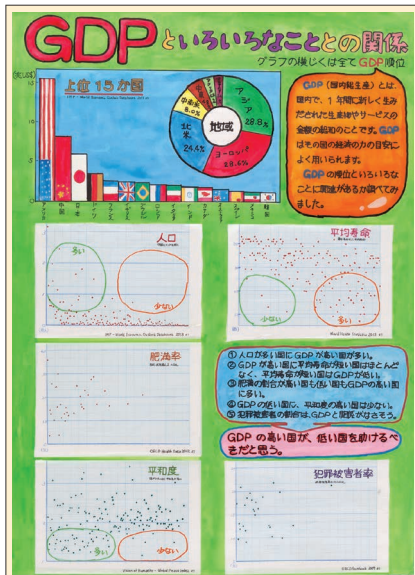 GDPといろいろなこととの関係
グラフの横じくは全てGDP順位
上位15か国
地域
アジア
28.8%
ヨーロッパ
28.6%
北米
24.4%
中南米
8.0%
GDP(国内総生産)とは、
国内で、1年間に新しく生み
だされた生産物やサービスの
金額の総和のことです。GDP
はその国の経済の力の目安に
よく用いられます。
GDPの順位といろいろな
ことに関連があるか調べてみ
ました。
アメリカ
中国
日本
ドイツ
フランス
人口
多い
少ない
平均寿命
少ない
多い
肥満率
OECD Health Data 2012
①人口が多い国にGDPが高い国が多い。
②GDPが高い国に平均寿命が短い国はほとんど
なく、平均寿命が短い国はGDPが低い。
③肥満の割合が高い国も低い国もGDPの高い国
に多い。
④GDPの低い国に、平和度の高い国は少ない。
⑤犯罪被害者の割合は、GDPと関係がなさそう。
GDPの高い国が、低い国を助けるべ
きだと思う。
平和度
多い
少ない
犯罪被害者率